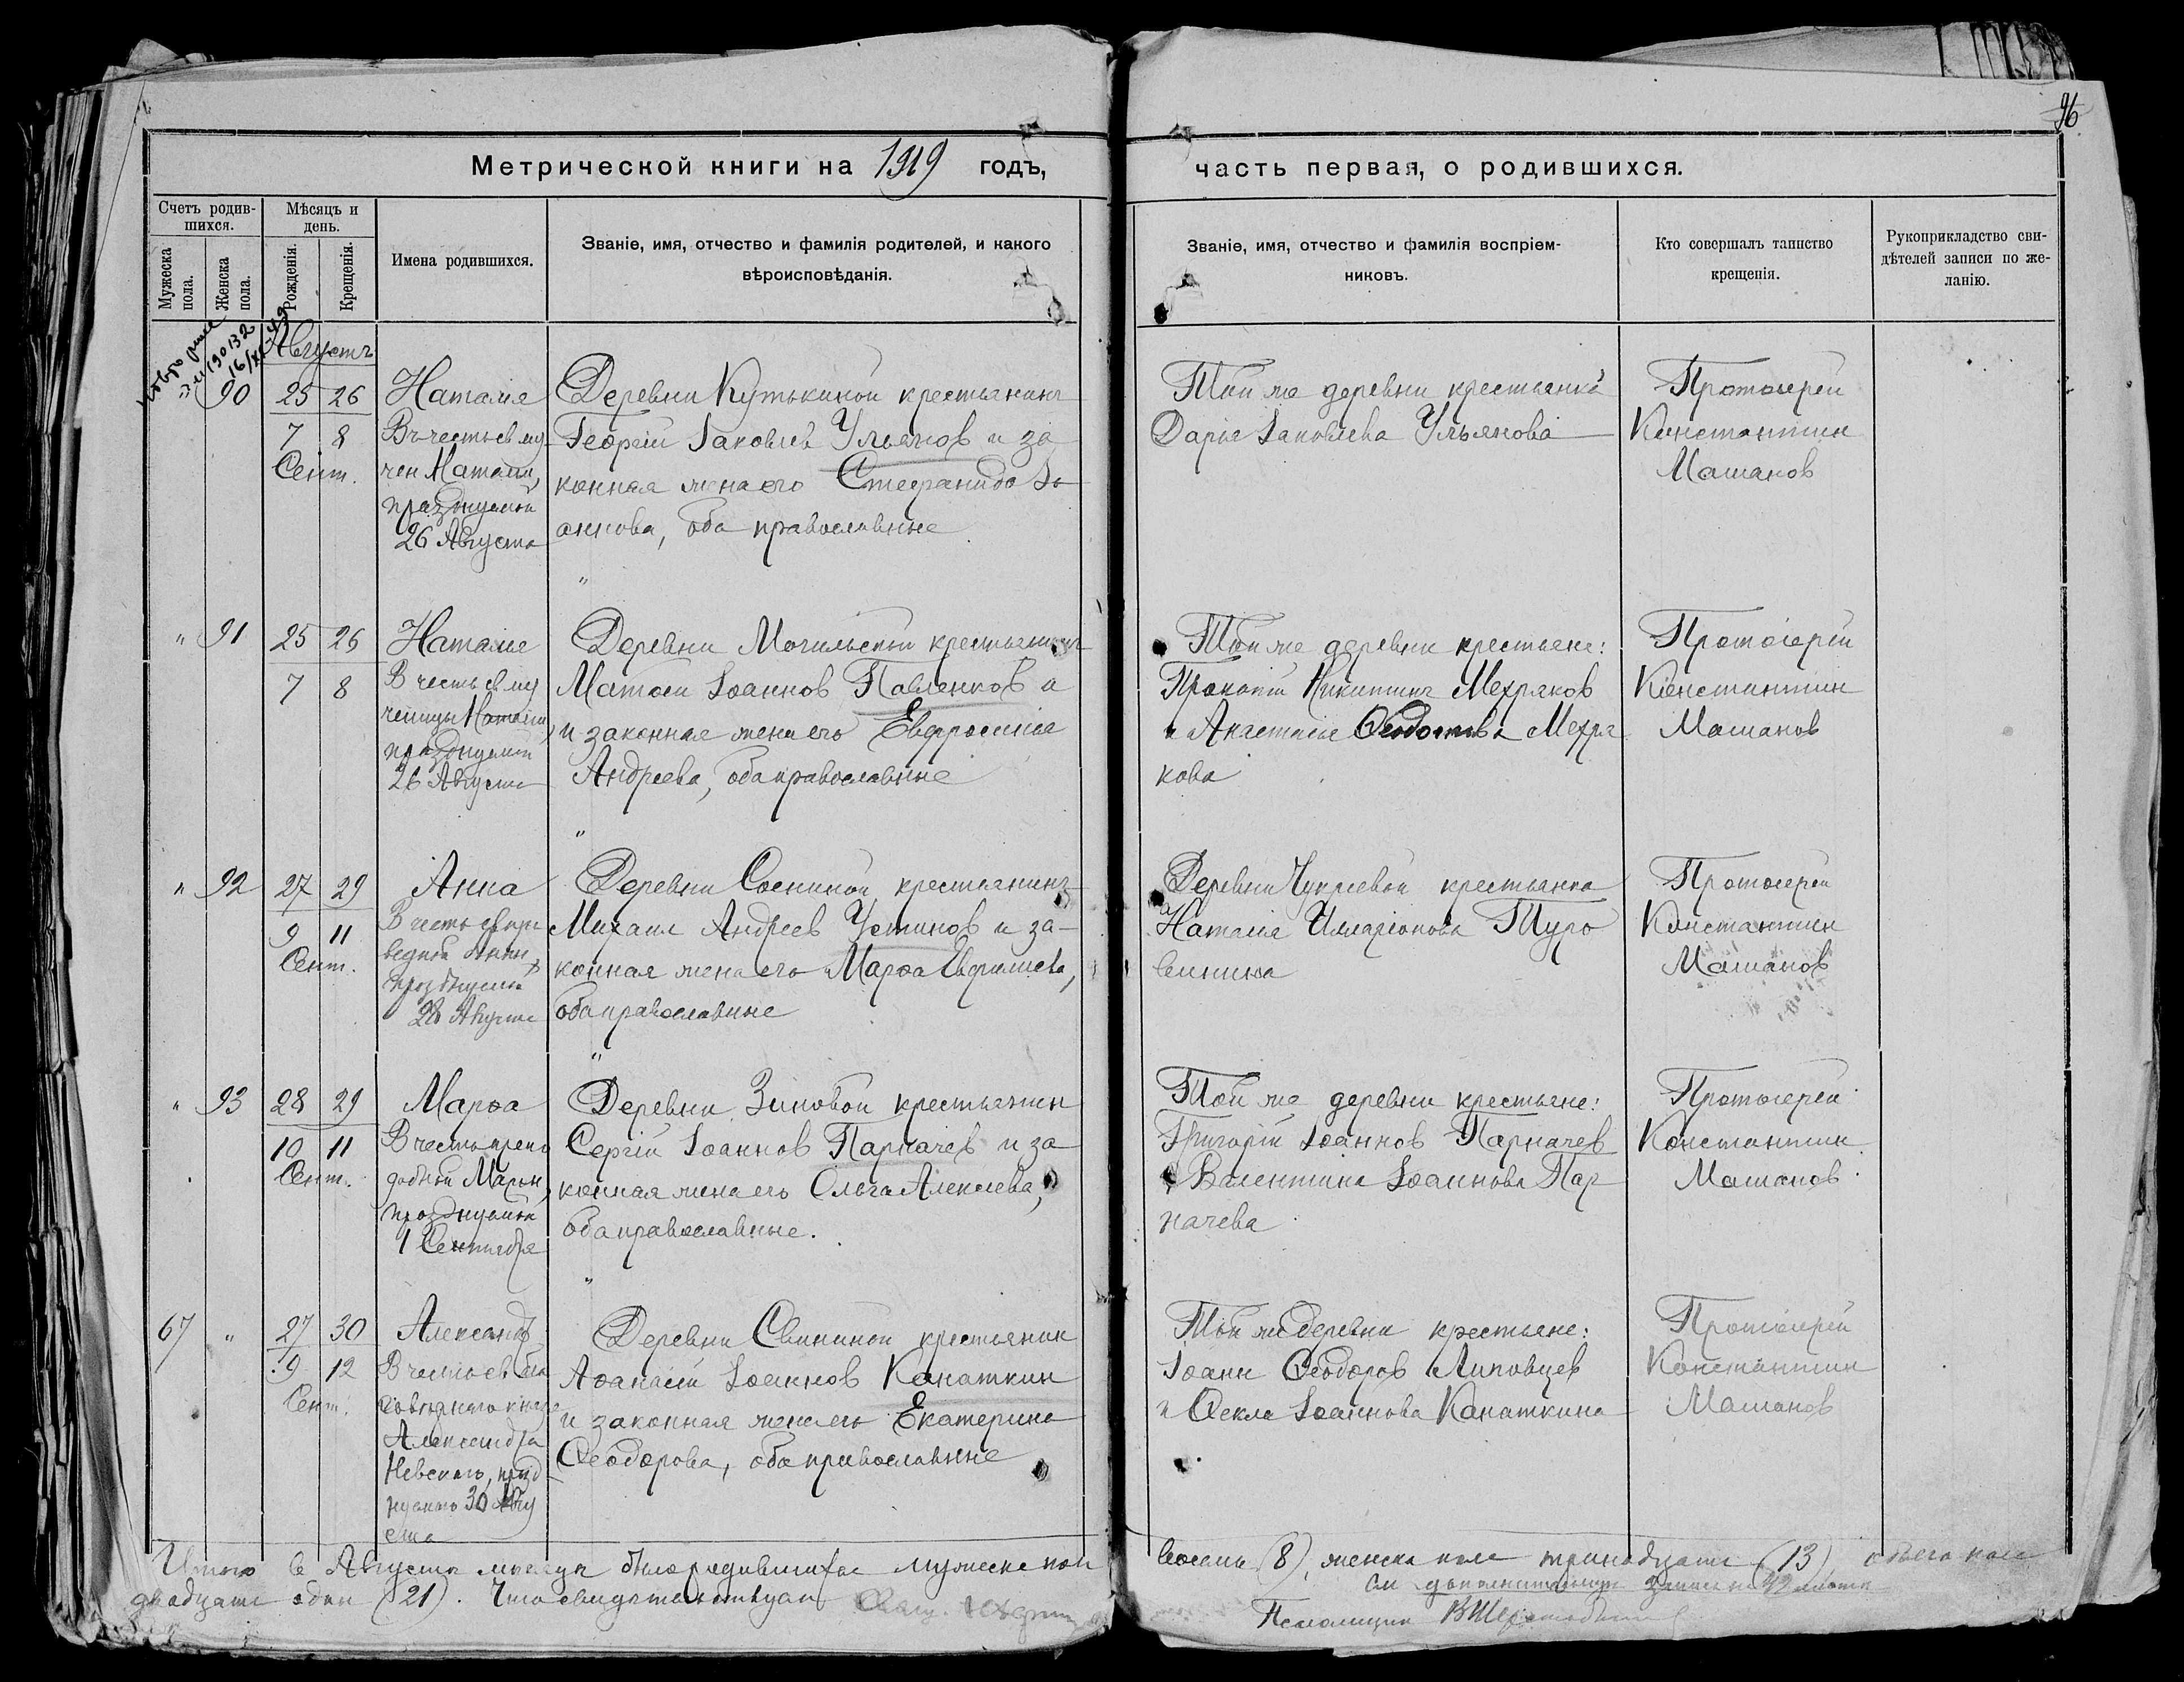 96
Метрической книги на 1919 годъ,
часть первая, о родившихся.
Счетъ родив-
шихся.
Мѣсяцъ и
день.
Мужеска
пола.
Женска
пола.
Рожденія.
Крещенія.
Имена родившихся.
Званіе, имя, отчество и фамилія родителей, и какого
вѣроисповѣданія.
Званіе, имя, отчество и фамилія воспріем-
никовъ.
Кто совершалъ таинство
крещенія.
Рукоприкладство сви-
дѣтелей записи по же-
ланію.
Августъ
90 25 26
7 8
Сент.
Наталія
В честь св му
чен Наталіи,
празднуемой
26 Августа
Деревни Кутькиной крестьянинъ
Георгій Іаковлев Ульянов и за
конная жена его Стефанида Іо
аннова, оба православные
Той же деревни крестьянка
Дарья Іаковлева Ульянова
Протоіерей
Константин
Машанов
" 91 25 26
7 8
Наталія
В честь св му
ченицы Наталіи,
празднуемой
26 Августа
Деревни Мочильской крестьянинъ
Матфей Іоаннов Павленков и
и законная жена его Евфросинія
Андреева, оба православные
Той же деревни крестьяне:
Прокопій Никитинъ Мехряков
и Анастасія Феодотова Мехря
кова
Протоіерей
Константин
Машанов
" 92 27 29
9 11
Сент.
Анна
В честь св пра
ведной Анны,
празднуемой
28 Августа
Деревни Соениной крестьянинъ
Михаил Андреев Устинов и за-
конная жена его Марѳа Евфиміева,
оба православные
Деревни Чукреевой крестьянка
Наталія Иларіонова Туро
винина
Протоіерей
Константин
Машанов
" 93 28 29
10 11
Сент.
Марѳа
В честь препо
добной Марѳы,
празднуемой
1 Сентября
Деревни Зиновой крестьянин
Сергій Іоаннов Парначев и за
конная жена его Ольга Алексеева,
оба православные.
Той же деревни крестьяне:
Григорій Іоаннов Парначев
и Валентина Іоаннова Пар
начева
Протоіерей
Константин
Машанов
67 " 27 30
9 12
Сент.
Александр
В честь св бла
говѣрнаго князя
Александра
Невского, празд
нуемого 30 Авгу
ста
Деревни Свининой крестьянин
Аѳанасій Іоаннов Канаткин
и законная жена его Екатерина
Ѳеодорова, оба православные
Той же деревни крестьяне:
Іоанн Ѳеодоров Липовцев
и Ѳекла Іоаннова Канаткина
Протоіерей
Константин
Машанов
Итого в Августе месяце было родившихся мужеска пола
восемь (8), женска пола тринадцать (13) обоего пола
двадцать один (21). Что свидетельствуют
см дополнительную запись на 42 листе
Псаломщик